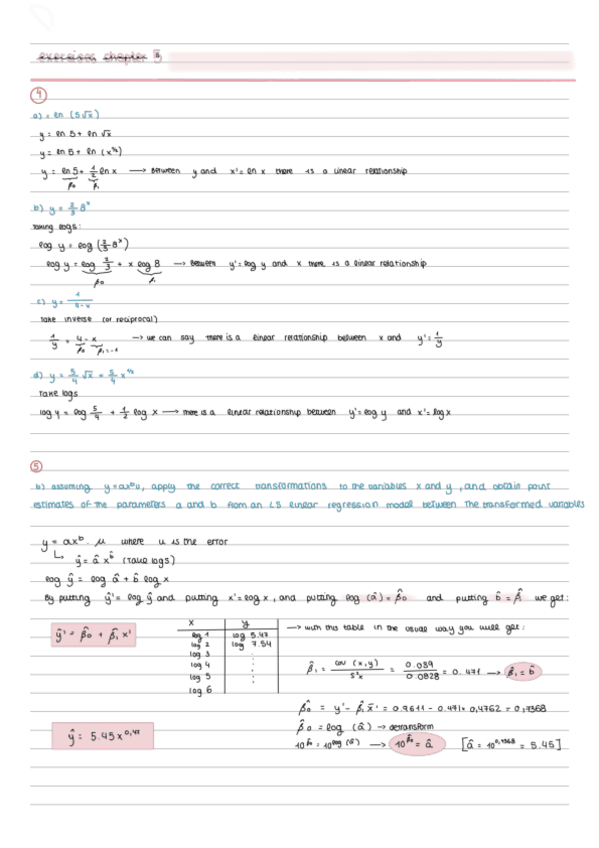 exercises chapter 5
4
a) = ln (5√x)
y = ln 5 + ln √x
y = ln 5 + ln (x^1/2)
y = ln 5 + 1/2 ln x → Between y and x' = ln x there is a linear relationship
β0 β1
b) y = 2/3 8^x
taking logs:
log y = log (2/3 8^x)
log y = log 2/3 + x log 8 → Between y' = log y and x there is a linear relationship
β0 β1
c) y = 1/4-x
take inverse (or reciprocal)
1/y = 4 - x → we can say there is a linear relationship between x and y' = 1/y
β0 β1=-1
d) y = 5/4 √x = 5/4 x^1/2
Take logs
log y = log 5/4 + 1/2 log x → there is a linear relationship between y' = log y and x' = log x
5
b) assuming y = ax^b u, apply the correct transformations to the variables x and y, and obtain point
estimates of the parameters a and b from an LS linear regression model between the transformed variables
y = ax^b · μ where u is the error
↳ ŷ = â x^b̂ (take logs)
log ŷ = log â + b̂ log x
By putting ŷ' = log ŷ and putting x' = log x, and putting log (â) = β̂0 and putting b̂ = β̂1 we get:
ŷ' = β̂0 + β̂1 x'
x y
log 1 log 5.47
log 2 log 7.54
log 3 .
log 4 .
log 5 .
log 6
→ with this table in the usual way you will get:
β̂1 = cov (x,y) / s²x = 0.039 / 0.0828 = 0.471 → β̂1 = b̂
β̂0 = y' - β̂1 x̄' = 0.9611 - 0.471 · 0,4762 = 0,7368
β̂0 = log (â) → detransform
10^β̂0 = 10^log(â) → 10^β̂0 = â [â = 10^0,7368 = 5.45]
ŷ = 5.45 x^0,47